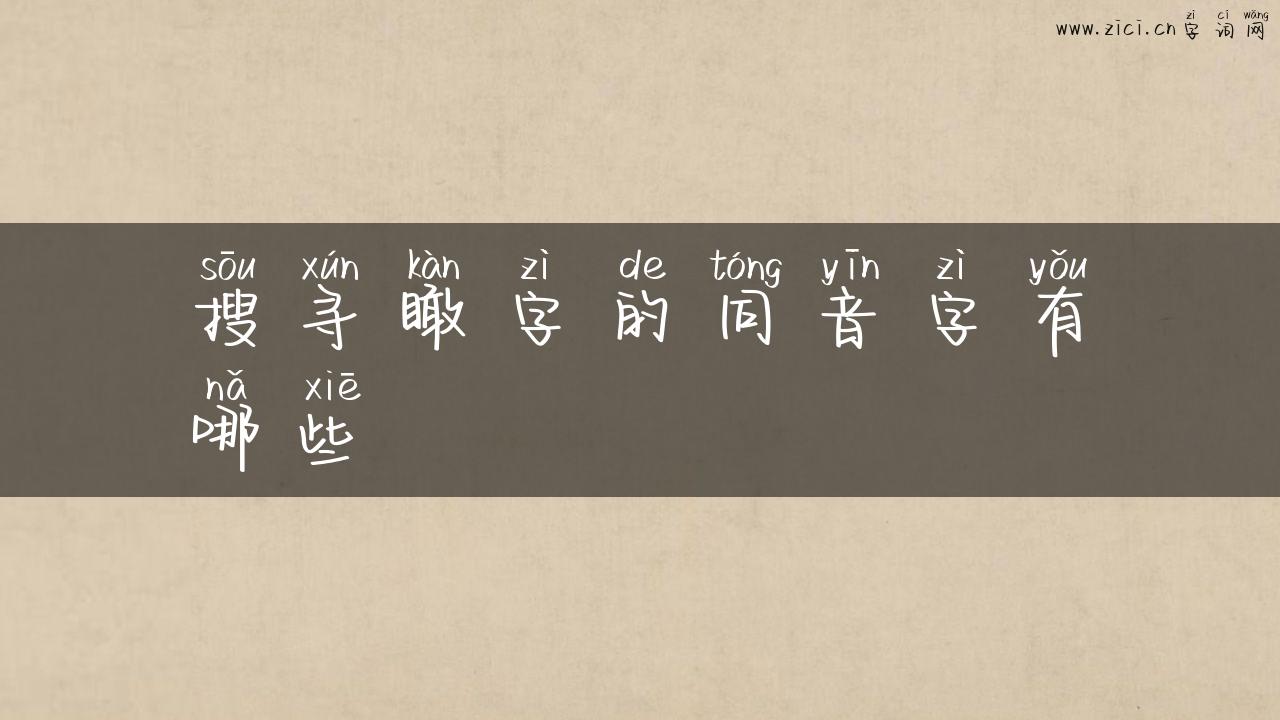 zì cí wǎng
www.zici.cn 字词网
sōu xún kàn zì de tóng yīn zì yǒu
搜寻瞰字的同音字有
nǎ xiē
哪些